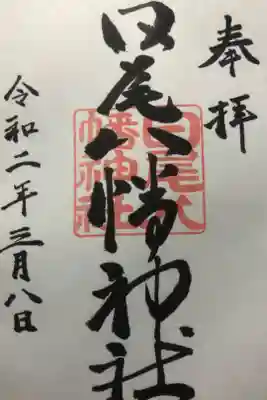 奉拝
日尾八幡神社
日尾八
幡神社
令和二年三月八日